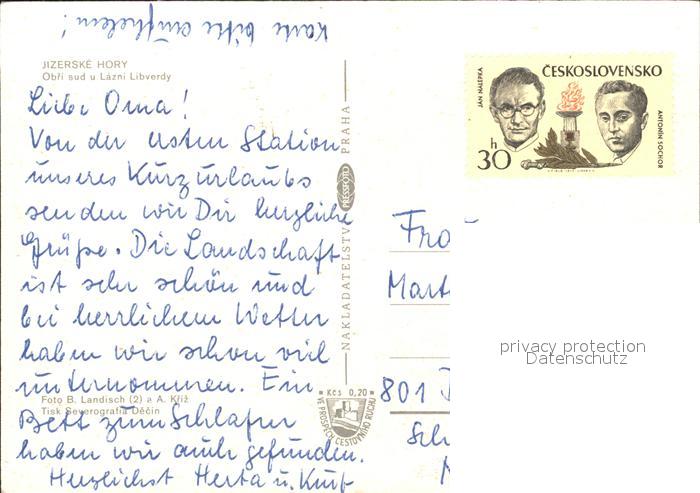 Karte bitte aufheben!
JIZERSKÉ HORY
Obří sud u Lázní Libverdy
Liebe Oma!
Von der ersten Station
unseres Kurzurlaubs
senden wir Dir herzliche
Grüße. Die Landschaft
ist sehr schön und
bei herrlichem Wetter
haben wir schon viel
unternommen. Ein
Bett zum Schlafen
haben wir auch gefunden.
Herzlichst Herta u. Kurt
Foto B. Landisch (2) a A. Kříž
Tisk Severografia Děčín
NAKLADATELSTVÍ PRESSFOTO PRAHA
Kčs 0,20
VE PROSPĚCH CESTOVNÍHO RUCHU
ČESKOSLOVENSKO
JÁN NÁLEPKA
ANTONÍN SOCHOR
30 h
Fra
Mart
801
Sch
privacy protection
Datenschutz